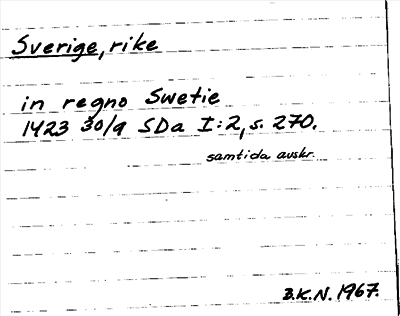 Sverige, rike
in regno Swetie
1423 30/9 SDa I:2, s. 270.
samtida avskr.
B.K.N. 1967.